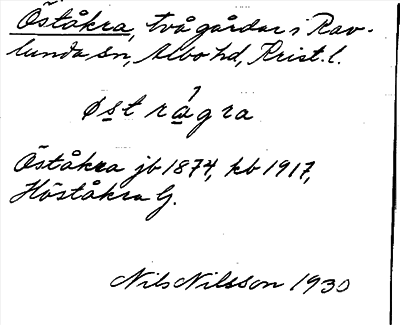 Öståkra, två gårdar i Rav-
lunda sn, Albo hd, Krist. l.
øst rågra
Öståkra jb 1874, kb 1917,
Höståkra G.
Nils Nilsson 1930